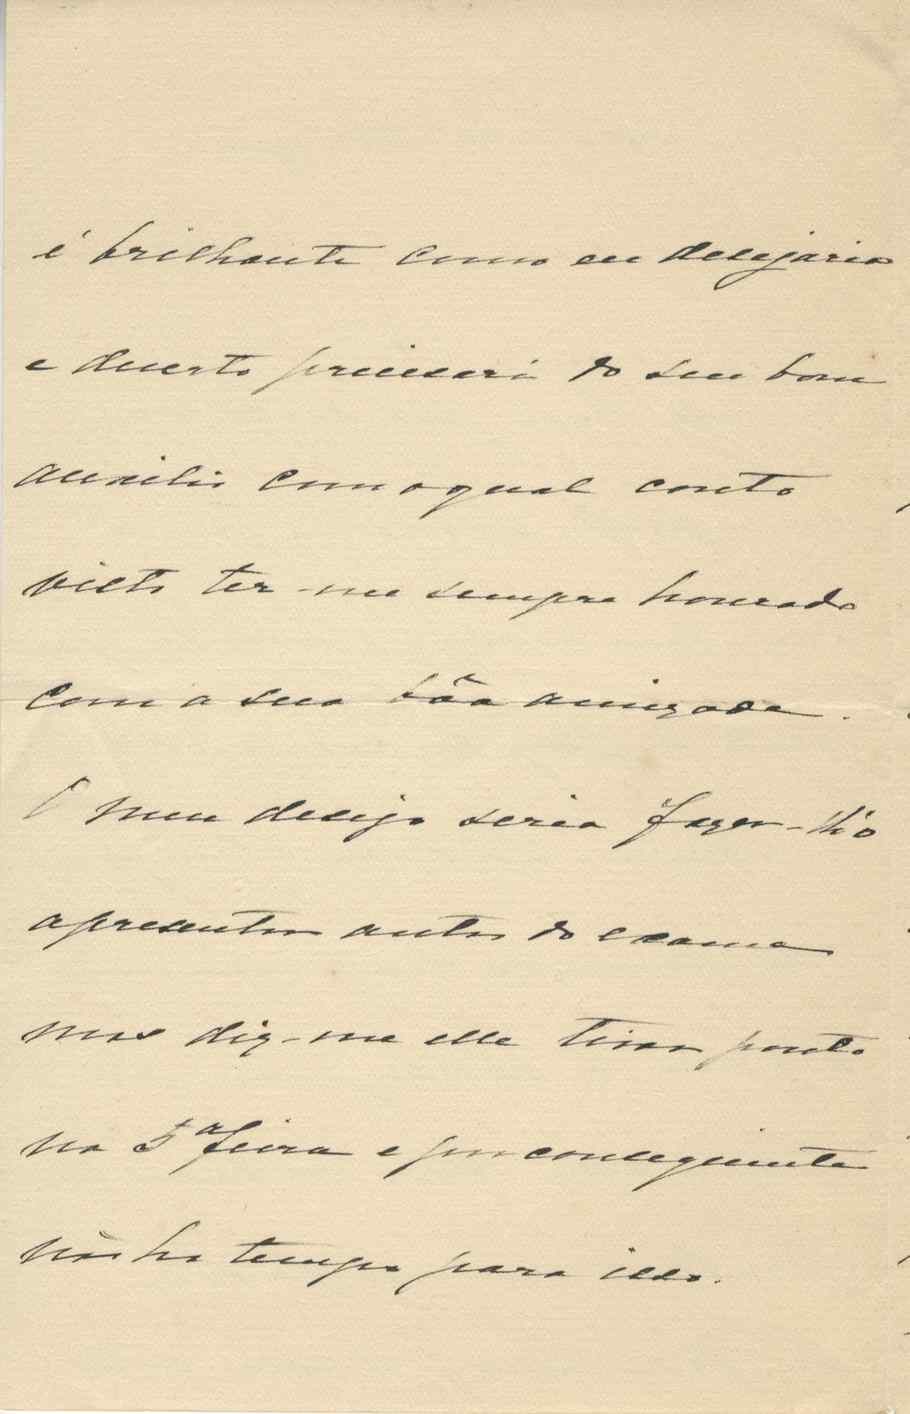 é brilhante como eu desejaria
e de certo precisará do seu bom
auxilio com o qual conto
visto ter-me sempre honrado
com a sua bôa amizade.
O meu desejo seria fazer-lh'o
apresentar antes do exame
mas diz-me elle tirar ponto
na 5ª feira e por conseguinte
não ha tempo para isso.